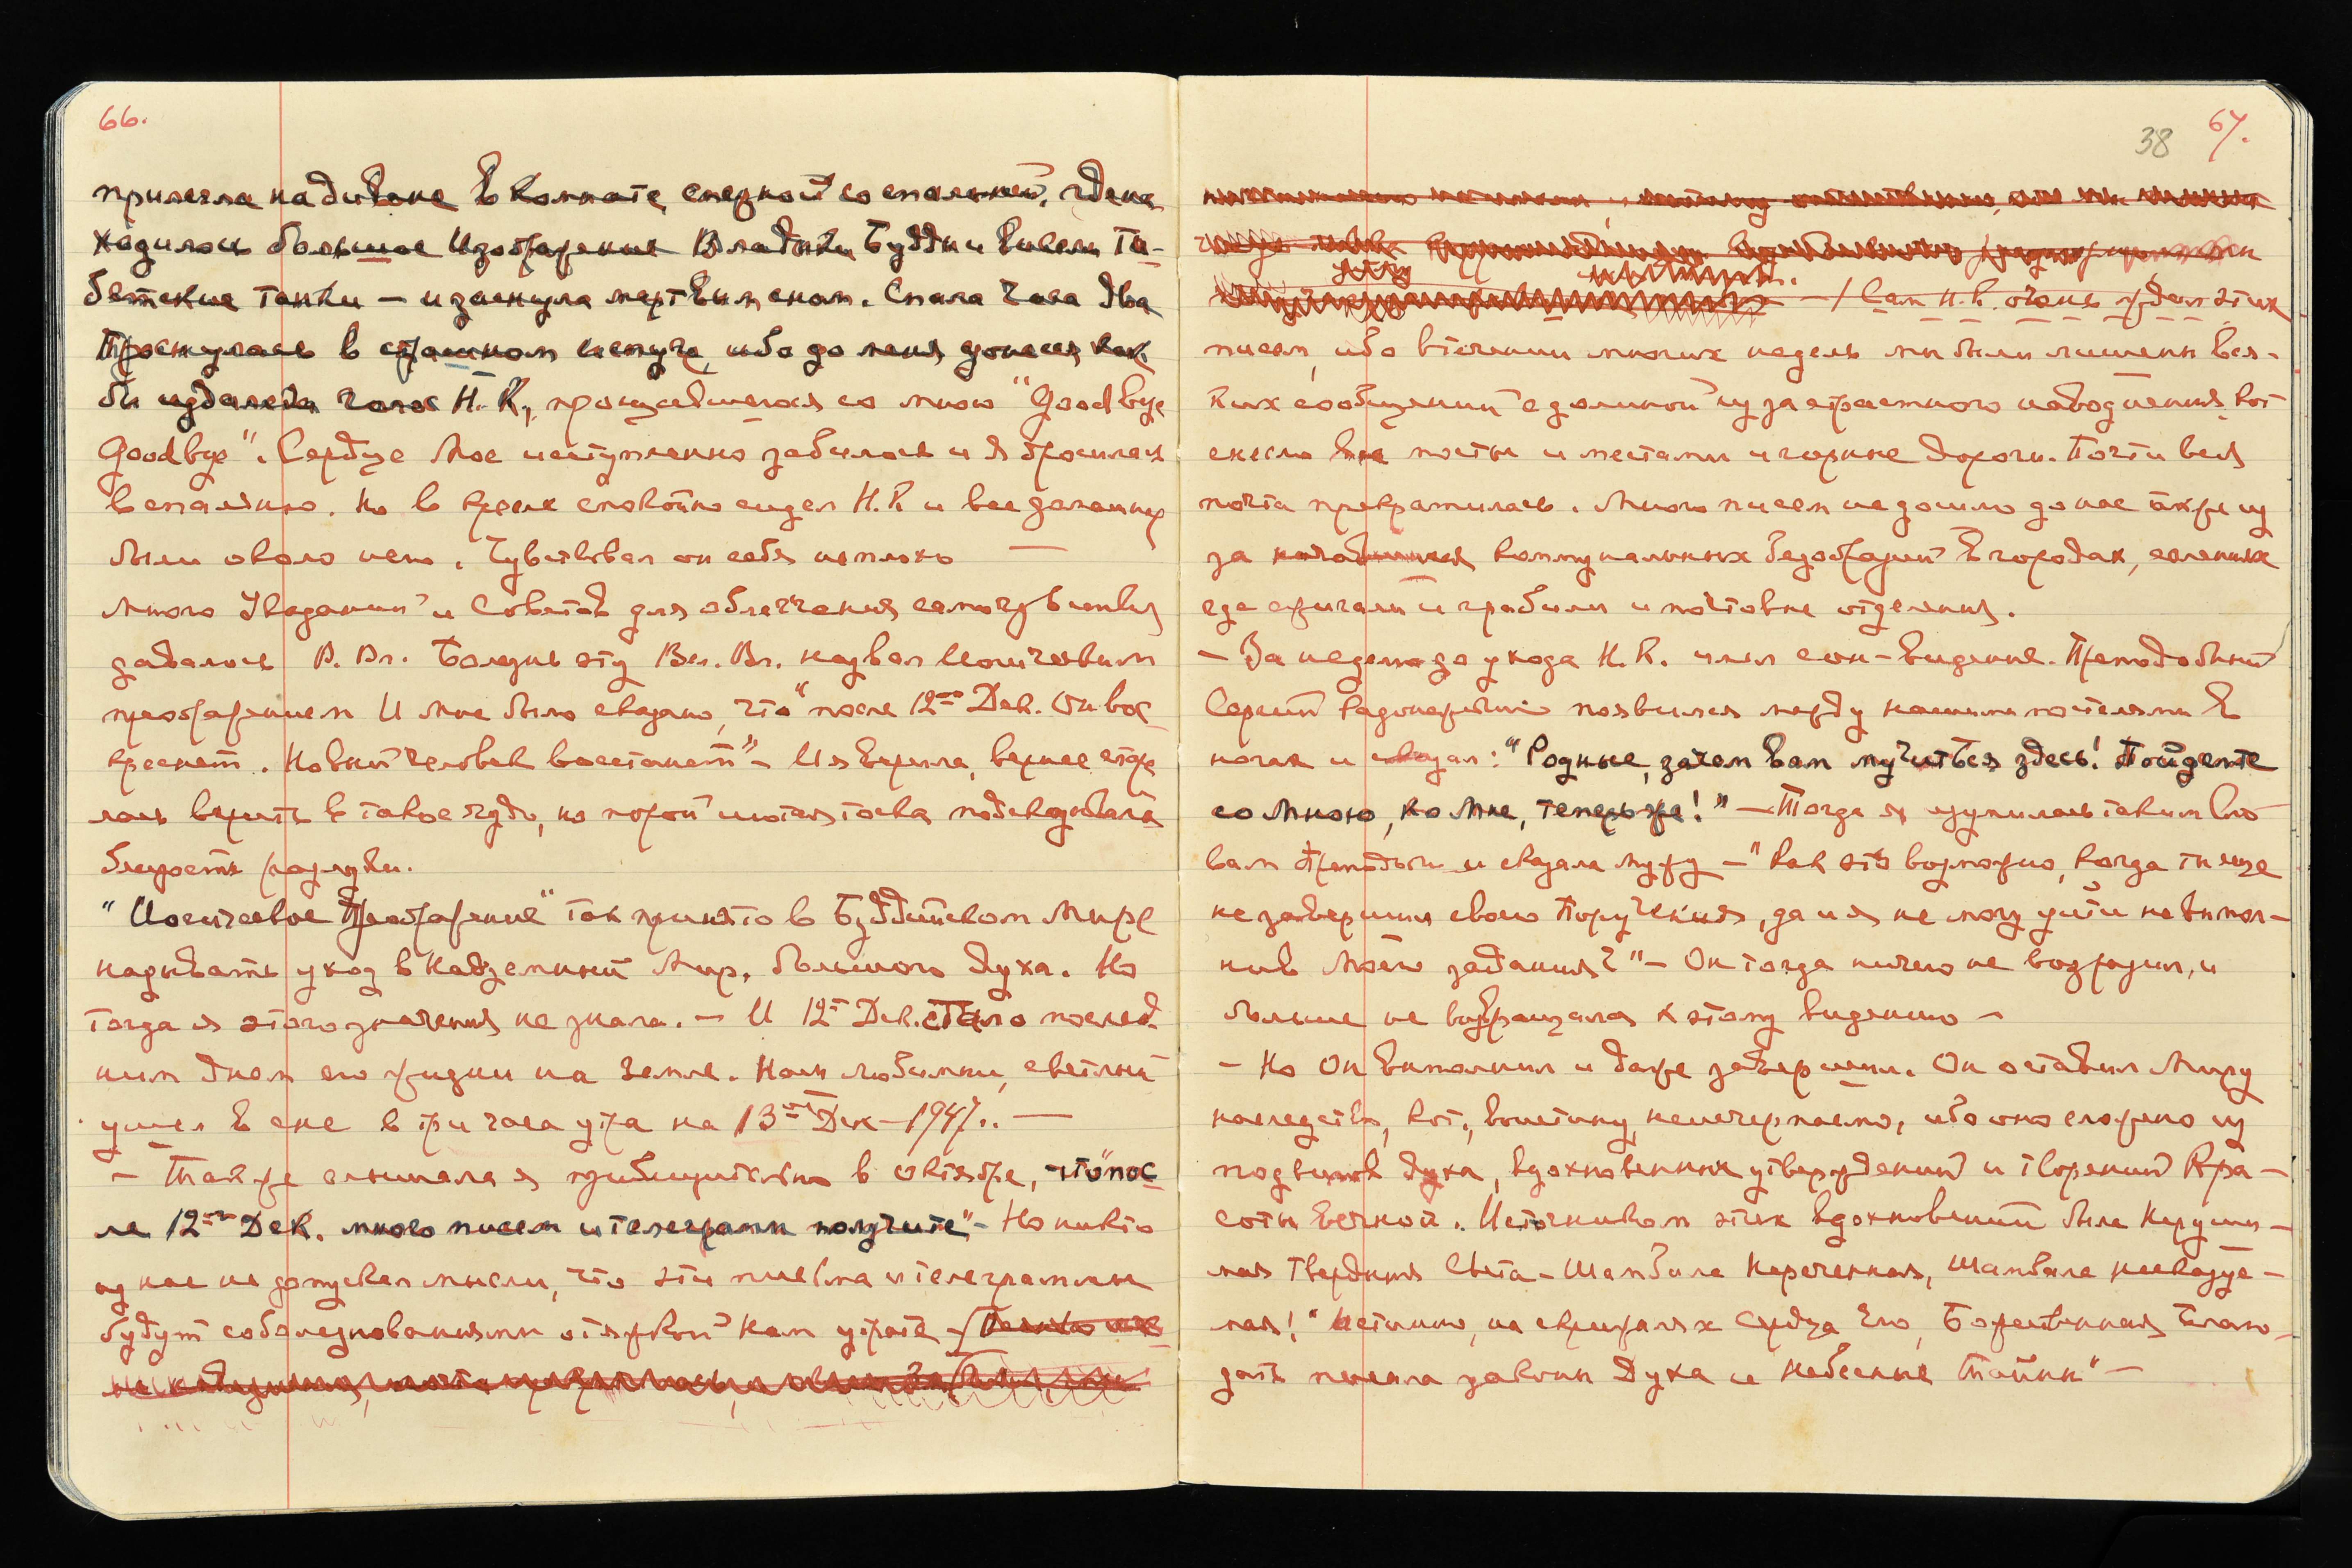 66.
прилегла на диване в комнате смежной со спальней, где на
ходилось большое Изображение Владыки Будды и висели Ти-
бетские танки — и заснула мертвым сном. Спала часа два
Проснулась в страшном испуге, ибо до меня донесся как
бы издалека голос Н.К., прощавшегося со мною "Good bye
Good bye". Сердце мое исступленно забилось и я бросилась
в спальню. Но в кресле спокойно сидел Н.К. и все домашние
были около него. Чувствовал он себя неплохо —
Много Указаний и Советов для облегчения самочувствия
давалось В. Вл. Болезнь эту Вел. Вл. назвал Иошчевым
преображением И мне было сказано, что "после 12го Дек. Он вос-
креснет. Новый человек восстанет" – И я верила, вернее
лась верить в такое чудо, но порой лютая тоска подсказывала
близость разлуки.
"Преображение" так принято в Буддийском Мире
называть уход в Надземный Мир, большого духа. Но
тогда я этого значения не знала. – И 12го Дек. стало послед.
ним днем его жизни на земле. Наш любимый, светлый
ушел во сне в три часа утра на 13ое Дек – 1947.. —
– Также слышала я в октябре, что "пос
ле 12го Дек. много писем и телеграмм получите" – Но никто
из нас не допускал мысли, что эти письма и телеграммы
будут соболезнованиями о тяжкой нам утрате –
38 67.
– / Сам Н.К. очень ждал этих
писем, ибо в течении многих недель мы были лишены вся-
ких сообщений с долиной из за страшного наводнения, кот
снесло все мосты и местами и горные дороги. Почти вся
почта прекратилась. Много писем не дошло до нас также из
за коммунальных безобразий в городах, селениях
где сжигали и грабили и почтовые отделения.
– За неделю до ухода Н.К. имел сон-видение. Преподобный
Сергий Радонежский появился между нашими постелями в
ногах и сказал: "Родные, зачем вам мучиться здесь! Пойдемте
со Мною, ко Мне, теперь же!" – Тогда я изумилась таким сло
вам Преподобн. и сказала мужу – "Как это возможно, когда ты еще
не завершил своего Поручения, да и я не могу уйти не выпол-
нив моего задания?" – Он тогда ничего не возразил, и
больше не возвращался к этому видению –
– Но Он выполнил и даже завершил. Он оставил Миру
наследство, кот., воистину, неисчерпаемо, ибо оно сложено из
подвигов духа, вдохновенных утверждений и творений Кра-
соты вечной. Источником этих вдохновений была Неруши-
мая твердыня Света – Шамбала Нареченная, Шамбала несказуе-
мая! "Истинно, на скрижалях сердца Его, Божественная Благо-
дать законы Духа и Небесные Тайны" –